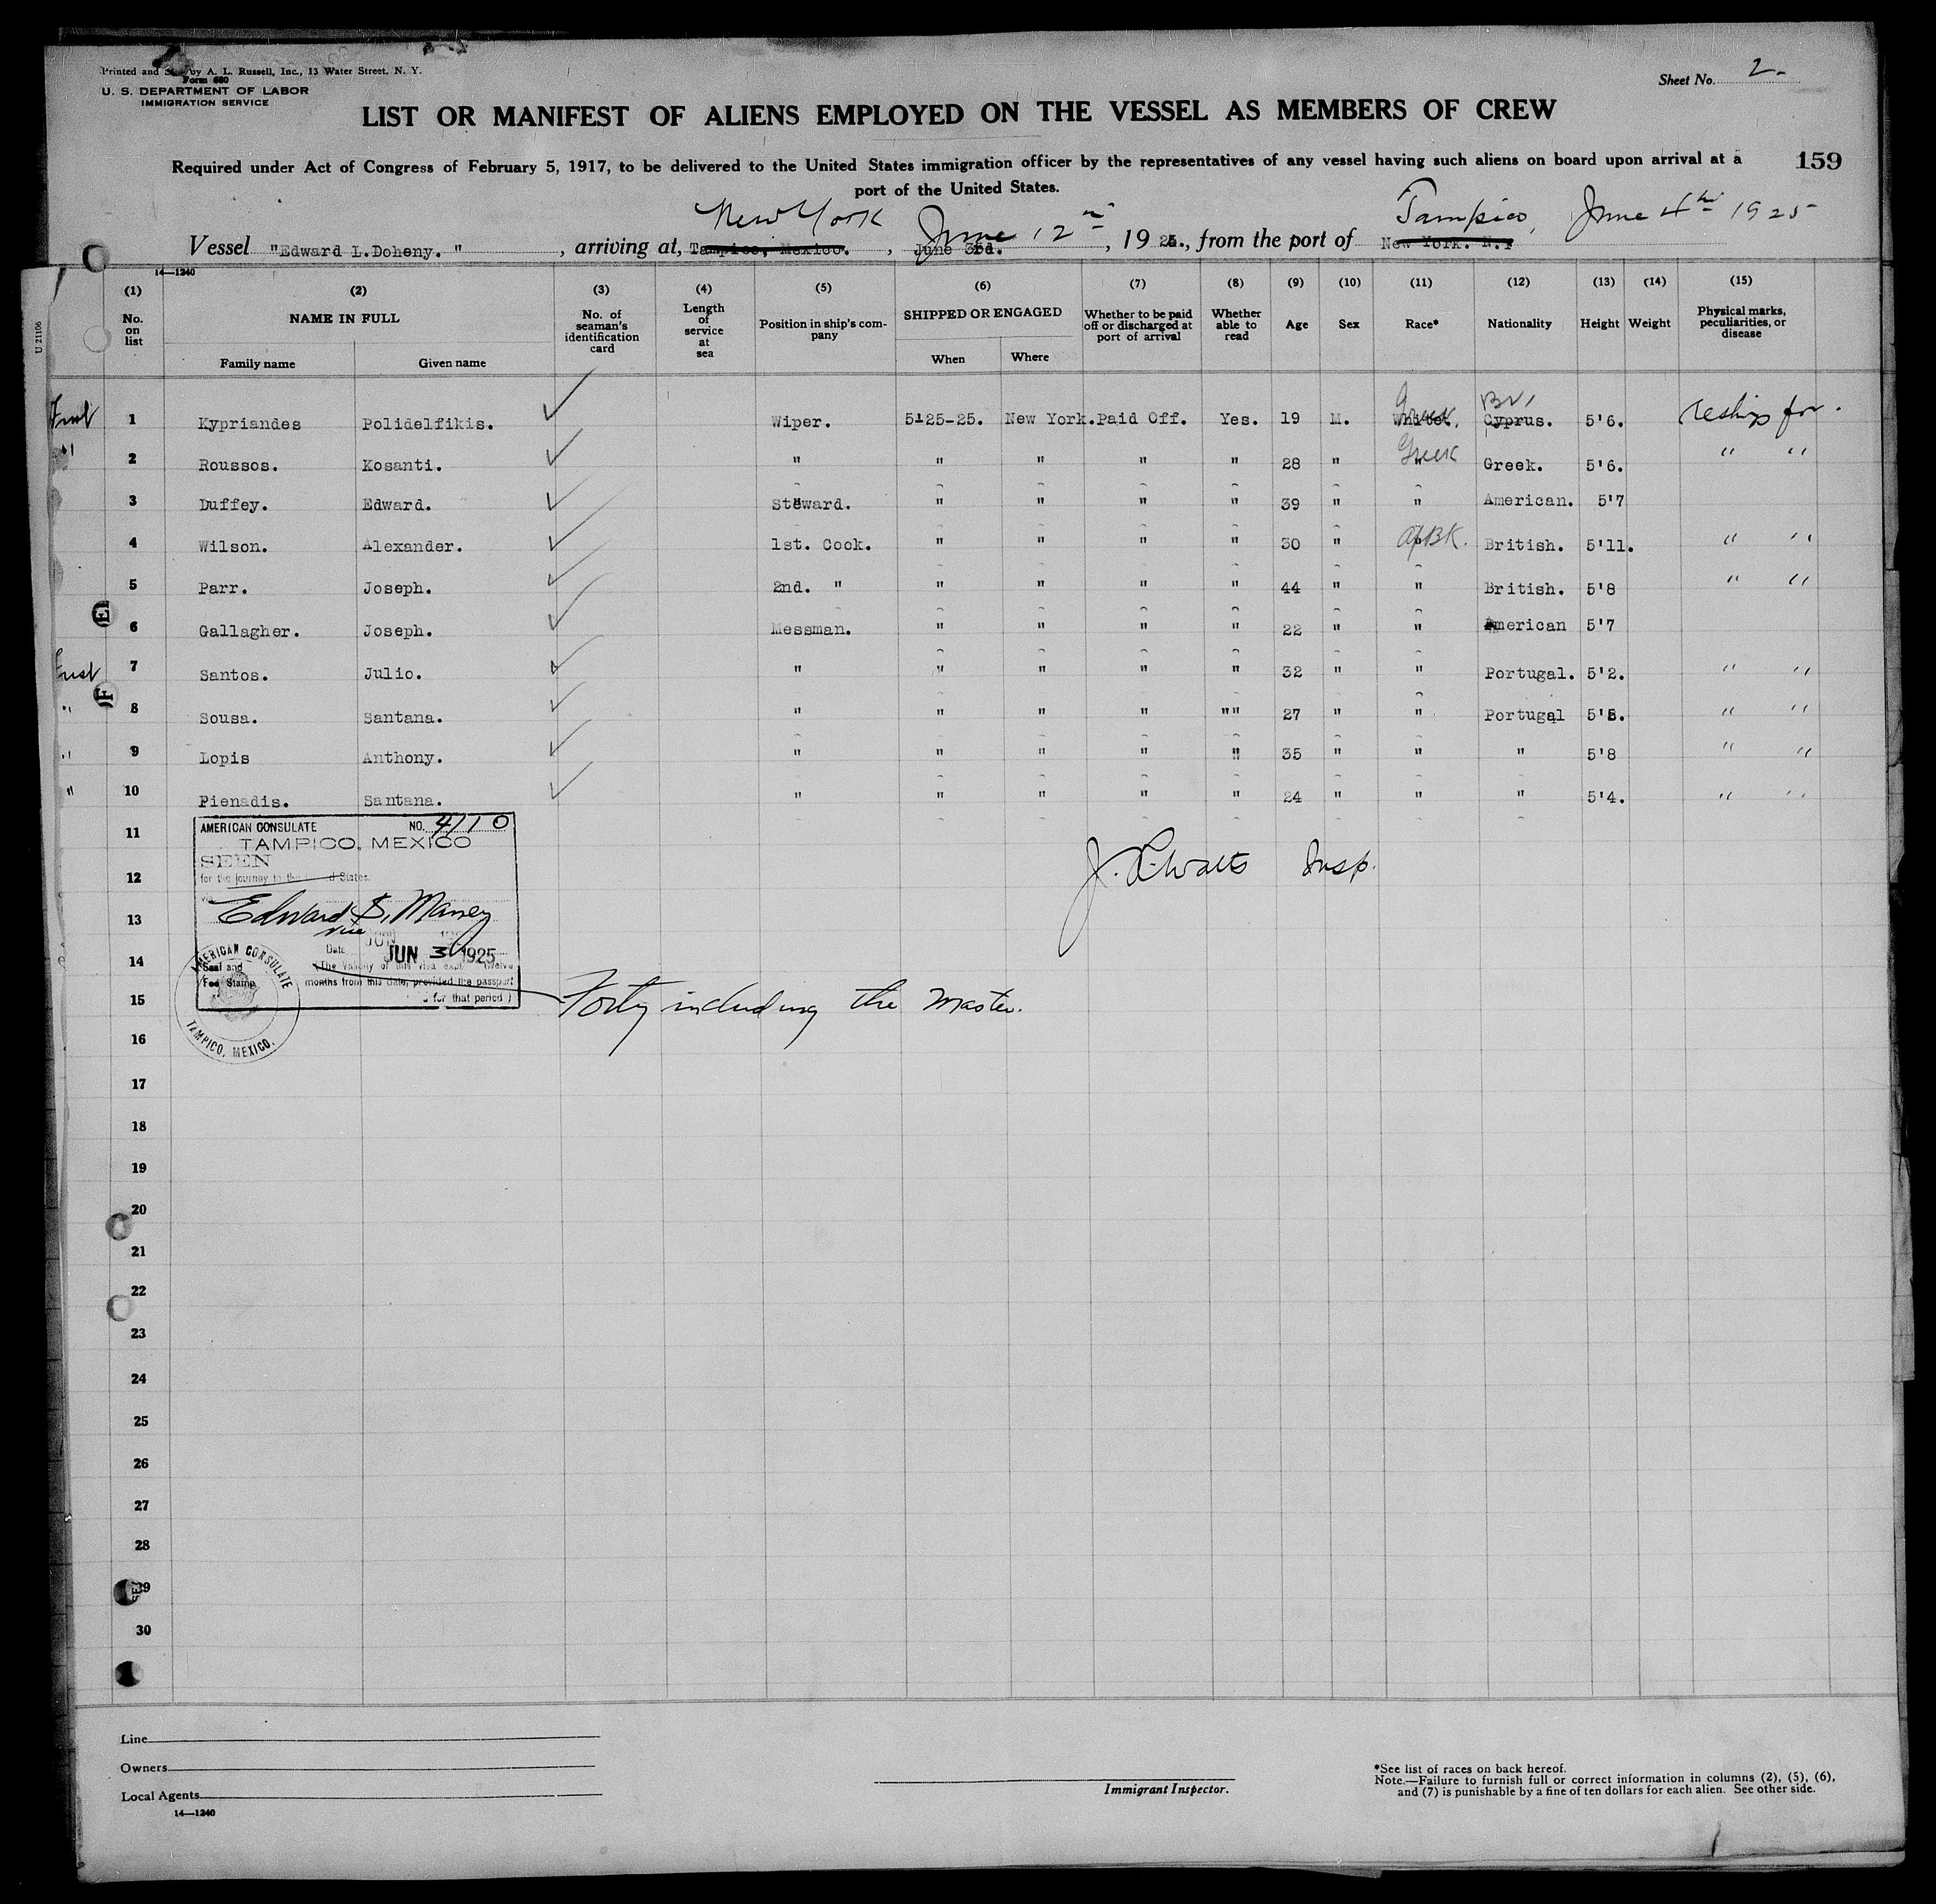 Printed and Sold by A. L. Russell, Inc., 13 Water Street, N. Y.
Form 680
U. S. DEPARTMENT OF LABOR
IMMIGRATION SERVICE
Sheet No. 2-
LIST OR MANIFEST OF ALIENS EMPLOYED ON THE VESSEL AS MEMBERS OF CREW
Required under Act of Congress of February 5, 1917, to be delivered to the United States immigration officer by the representatives of any vessel having such aliens on board upon arrival at a
port of the United States.
159
New York June 12 Tampico, June 4th 1925
Vessel "Edward L.Doheny. ", arriving at, Tampico, Mexico., June 3rd., 1925., from the port of New York. N.Y
14—1240
U 21106
(1) (2) (3) (4) (5) (6) (7) (8) (9) (10) (11) (12) (13) (14) (15)
No. on list NAME IN FULL No. of seaman's identification card Length of service at sea Position in ship's company SHIPPED OR ENGAGED Whether to be paid off or discharged at port of arrival Whether able to read Age Sex Race* Nationality Height Weight Physical marks, peculiarities, or disease
Family name Given name When Where
Greek Br,
1 Kypriandes Polidelfikis. Wiper. 5-25-25. New York. Paid Off. Yes. 19 M. White. Cyprus. 5'6. reship for.
2 Roussos. Kosanti. " " " " " 28 " Greek Greek. 5'6. " "
3 Duffey. Edward. Steward. " " " " 39 " " American. 5'7
4 Wilson. Alexander. 1st. Cook. " " " " 30 " British. 5'11. " "
5 Parr. Joseph. 2nd. " " " " " 44 " " British. 5'8 " "
6 Gallagher. Joseph. Messman. " " " " 22 " " American 5'7
7 Santos. Julio. " " " " " 32 " " Portugal. 5'2. " "
" 8 Sousa. Santana. " " " " "" 27 " " Portugal 5'5. " "
" 9 Lopis Anthony. " " " " " 35 " " " 5'8 " "
" 10 Pienadis. Santana. " " " " " 24 " " " 5'4. " "
11
AMERICAN CONSULATE NO. 4110
TAMPICO, MEXICO
SEEN
12
for the journey to the States.
Insp.
13
Edward S. Maney
vice
Date JUN 3 1925
14
AMERICAN CONSULATE
Seal and
Fee Stamp
(The validity of this visa expires twelve
months from this date, provided the passport
for that period)
15 Forty including the Master.
TAMPICO, MEXICO.
16
17
18
19
20
21
22
23
24
25
26
27
28
29
30
Line
Owners
Local Agents
14—1240
Immigrant Inspector.
*See list of races on back hereof.
Note.—Failure to furnish full or correct information in columns (2), (5), (6),
and (7) is punishable by a fine of ten dollars for each alien. See other side.